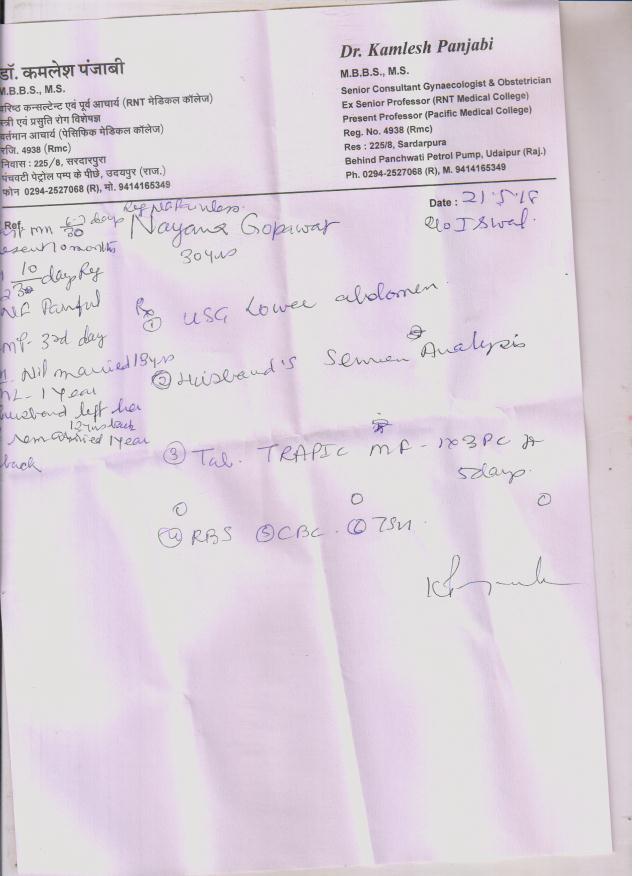 डॉ. कमलेश पंजाबी
M.B.B.S., M.S.
वरिष्ठ कन्सल्टेन्ट एवं पूर्व आचार्य (RNT मेडिकल कॉलेज)
स्त्री एवं प्रसुति रोग विशेषज्ञ
वर्तमान आचार्य (पेसिफिक मेडिकल कॉलेज)
रजि. 4938 (Rmc)
निवास : 225/8, सरदारपुरा
पंचवटी पेट्रोल पम्प के पीछे, उदयपुर (राज.)
फोन 0294-2527068 (R), मो. 9414165349
Dr. Kamlesh Panjabi
M.B.B.S., M.S.
Senior Consultant Gynaecologist & Obstetrician
Ex Senior Professor (RNT Medical College)
Present Professor (Pacific Medical College)
Reg. No. 4938 (Rmc)
Res : 225/8, Sardarpura
Behind Panchwati Petrol Pump, Udaipur (Raj.)
Ph. 0294-2527068 (R), M. 9414165349
Ref.
Date : 21.5.18
Nayana
30yrs
days
10 months
10 days Reg
Painful
MP - 3rd day
Nil married 13yrs
ML - 1 year
husband left her
12yrs back
remarried 1 year
back
Rx
① USG Lower abdomen
② Husband's Semen Analysis
③ Tab. TRAPIC MF - 1x3 PC
5 days
④ RBS ⑤ CBC. ⑥ TSH.